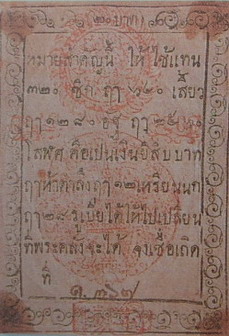 ๒๐ บาท
หมายสำคัญนี้ ให้ ใช้แทน
๓๒๐ ซีก ฤๅ ๖๔๐ เสี้ยว
ฤๅ ๑๒๘๐ อฐ ฤๅ ๒๕๖๐
โสฬศ คือเป็นเงินยี่สิบบาท
ฤๅห้าตำลึง ฤๅ ๑๒ เหรียนนก
ฤๅ ๒๘ รูเบีย ได้ให้ไปเปลี่ยน
ที่พระคลังจะได้ จงเชื่อเถิด
ที่